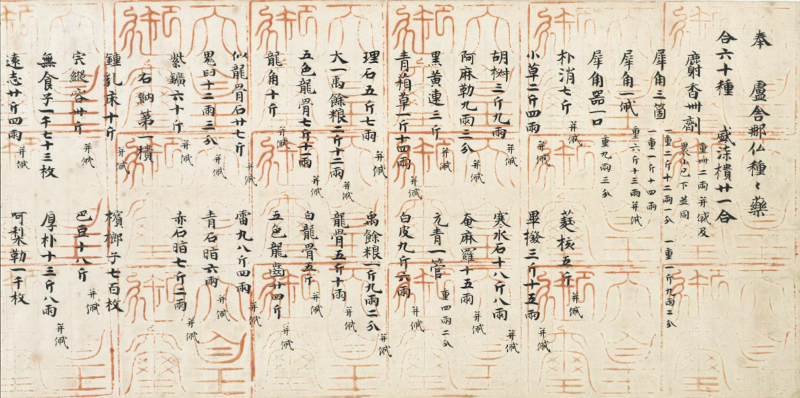 奉 盧舎那仏種々薬
合六十種 盛漆櫃廿一合
麝香卌剤 重卌二両并袋及
裹衣已下並同
犀角三箇 一重二斤十二両二分 一重一斤九両二分
一重一斤十四両
犀角一袋 重六斤十三両并袋
犀角器一口 重九両三分
朴消七斤 并袋 蕤核五斤 并袋
小草二斤四両 并袋 畢撥三斤十五両 并袋
胡椒三斤九両 并袋 寒水石十八斤八両 并袋
阿麻勒九両三分 并袋 奄麻羅十五両 并袋
黒黄連三斤 并袋 元青一管 重四両二分
青葙草一斤十四両 并袋 白皮九斤六両 并袋
理石五斤七両 并袋 禹餘粮一斤九両二分 并袋
大一禹餘粮二斤十二両 并袋 龍骨五斤十両 并袋
五色龍骨七斤十一両 并袋 白龍骨五斤 并袋
龍角十斤 并袋 五色龍歯廿四斤 并袋
似龍骨石廿七斤 并袋 雷丸八斤四両 并袋
鬼臼十三両二分 并袋 青石脂六両 并袋
紫鑛六十斤 并袋 赤石脂七斤二両 并袋
右納第一櫃
鍾乳床十斤 并袋 檳榔子七百枚
宍縦容卅斤 并袋 巴豆十八斤 并袋
無食子一千七十三枚 厚朴十三斤八両 并袋
遠志廿斤四両 并袋 呵梨勒一千枚